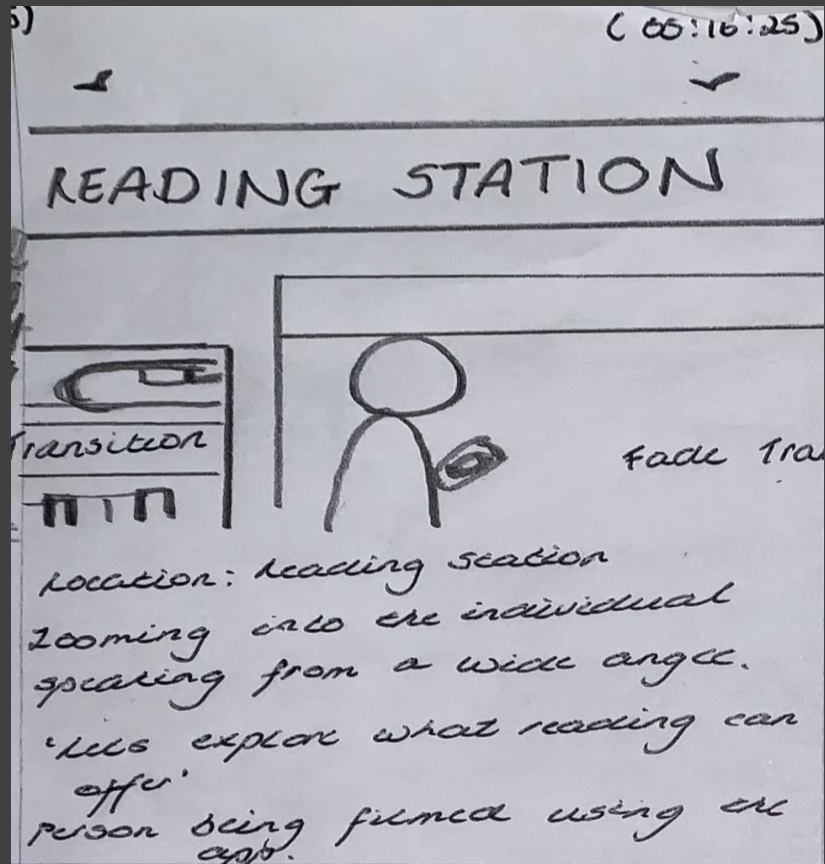 5)
(00:16:25)
READING STATION
Transition
Fade Tra
Location: Reading Station
Zooming into the individual
speaking from a wide angle.
'Lets explore what reading can
offer'
Person being filmed using the
app.